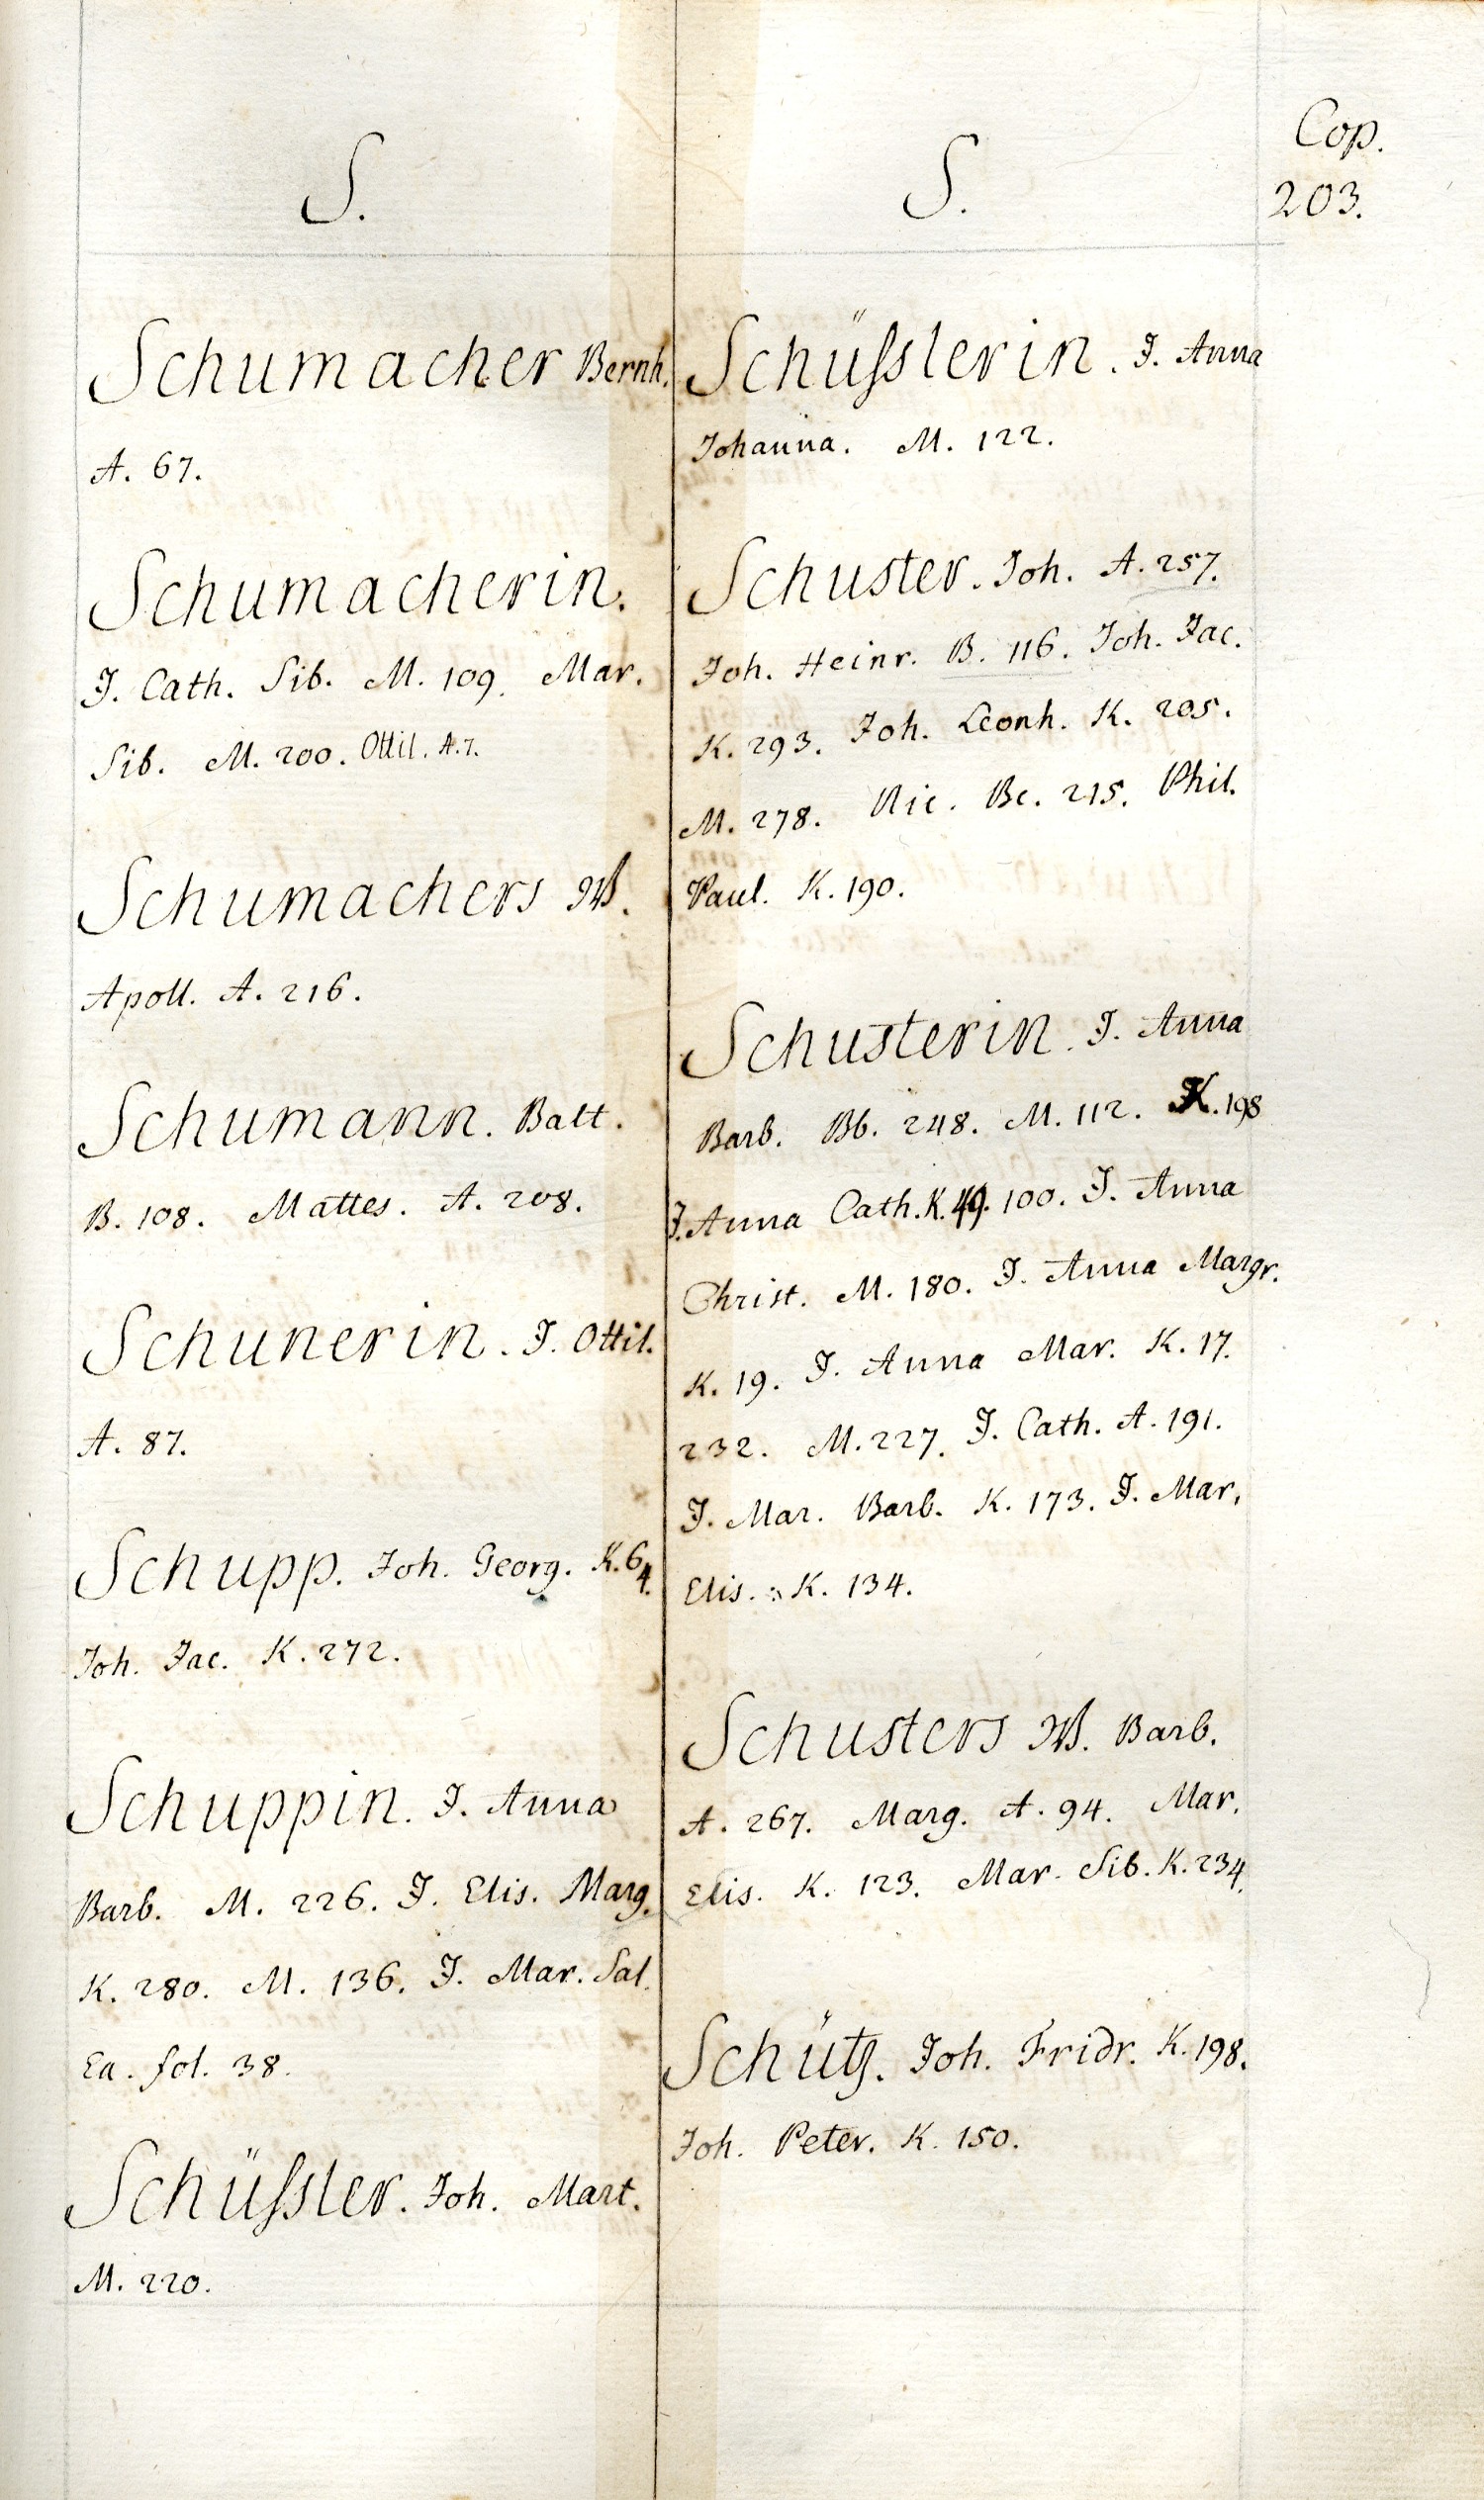 S.
Schumacher Bernh.
A. 67.
Schumacherin.
J. Cath. Sib. M. 109. Mar.
Sib. M. 200. Ottil. A. 7.
Schumachers W.
Apoll. A. 216.
Schumann. Balt.
B. 108. Mattes. A. 208.
Schunerin. J. Ottil.
A. 87.
Schupp. Joh. Georg. K. 64.
Joh. Jac. K. 272.
Schuppin. J. Anna
Barb. M. 226. J. Elis. Marg.
K. 280. M. 136. J. Mar. Sal.
Ea. fol. 38.
Schüſsler. Joh. Mart.
M. 220.
S.
Schüſslerin. J. Anna
Johanna. M. 122.
Schuster. Joh. A. 257.
Joh. Heinr. B. 116. Joh. Jac.
K. 293. Joh. Leonh. K. 205.
M. 278. Nic. Bc. 215. Phil.
Paul. K. 190.
Schusterin. J. Anna
Barb. Bb. 248. M. 112. K. 198
J. Anna Cath. K. 49. 100. J. Anna
Christ. M. 180. J. Anna Margr.
K. 19. J. Anna Mar. K. 17.
232. M. 227. J. Cath. A. 191.
J. Mar. Barb. K. 173. J. Mar.
Elis. K. 134.
Schusters W. Barb.
A. 267. Marg. A. 94. Mar.
Elis. K. 123. Mar. Sib. K. 234.
Schütz. Joh. Fridr. K. 198.
Joh. Peter. K. 150.
Cop.
203.